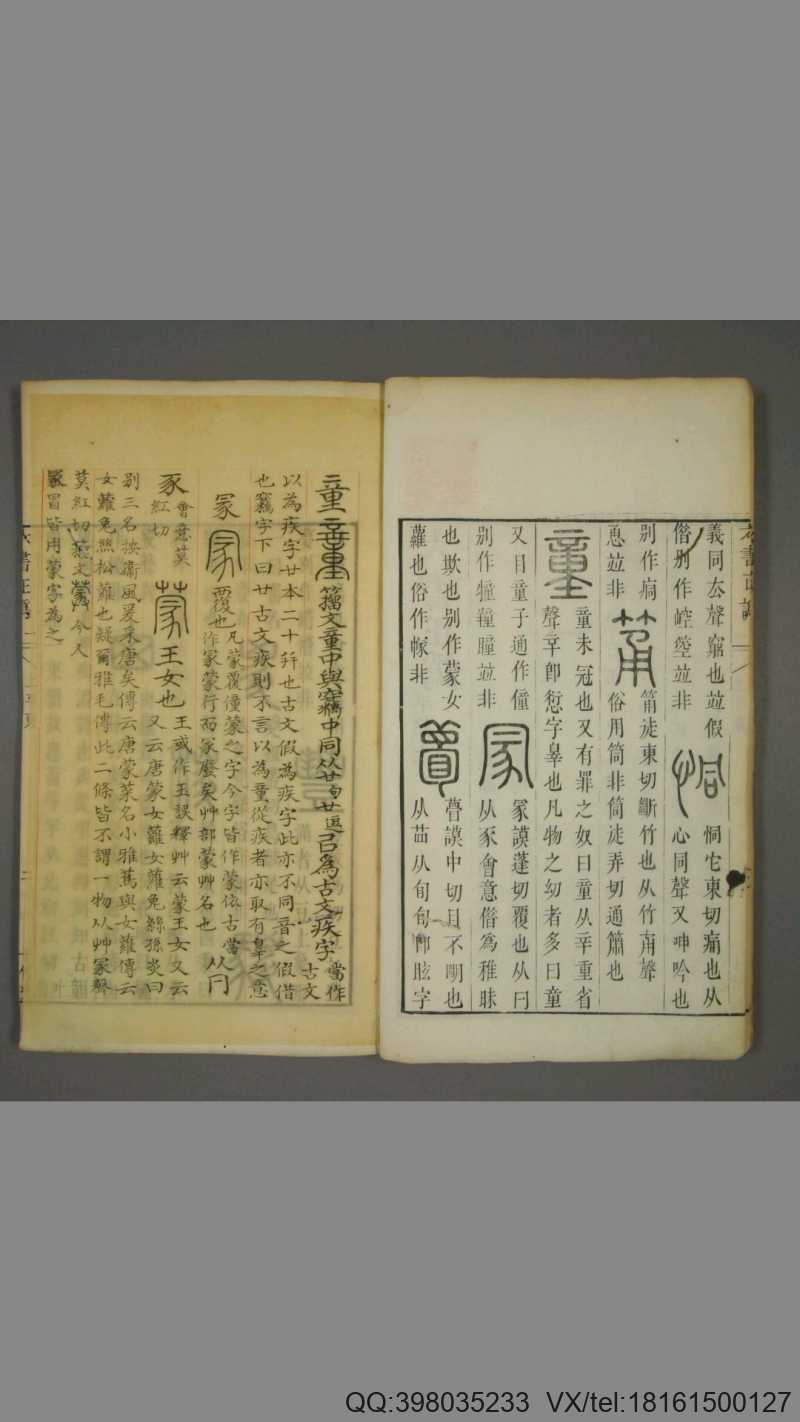 義同厺聲窾也竝假
俗別作崆箜竝非
恫 恫它東切痛也从
心同聲又呻吟也
別作痌
恿竝非
筩 筩徒東切斷竹也从竹甬聲
俗用筒非筒徒弄切通簫也
童 童未冠也又有罪之奴曰童从䇂重省
聲䇂卽愆字辠也凡物之幼者多曰童
又目童子通作僮
別作犝䮵瞳竝非
冡 冡謨蓬切覆也从冃
从豕會意俗爲稚昧
也欺也別作蒙女
蘿也俗作幏非
瞢 瞢謨中切目不朙也
从苜从旬旬卽眩字
童 籒文童中與竊中同从廿廿㠯爲古文疾字 當作古文
以為疾字廿本二十幷也古文假為疾字此亦不同音之假借
也竊字下曰廿古文疾則不言以為童從疾者亦取有辠之意
冡 冡 覆也 凡蒙覆僮蒙之字今字皆作蒙依古當
作冡蒙行而冡廢矣艸部蒙艸名也 从冃
豕 會意莫
紅切
蒙 王女也 王或作玉誤釋艸云蒙王女又云
又云唐蒙女蘿女蘿兔絲孫炎曰
別三名按衞風爰采唐矣傳云唐蒙菜名小雅蔦與女蘿傳云
女蘿兔絲松蘿也疑爾雅毛傳此二條皆不謂一物从艸冡聲
莫紅切 今人
冡冒皆用蒙字為之
QQ:398035233 VX/tel:18161500127